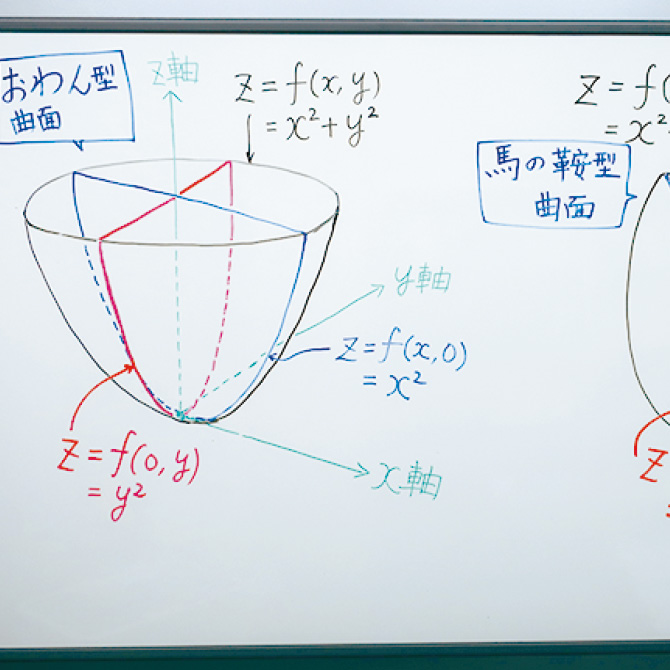 おわん型
曲面
z軸
z=f(x,y)
=x²+y²
y軸
z=f(x,0)
=x²
x軸
z=f(0,y)
=y²
z=f(
=x²
馬の鞍型
曲面
z
=